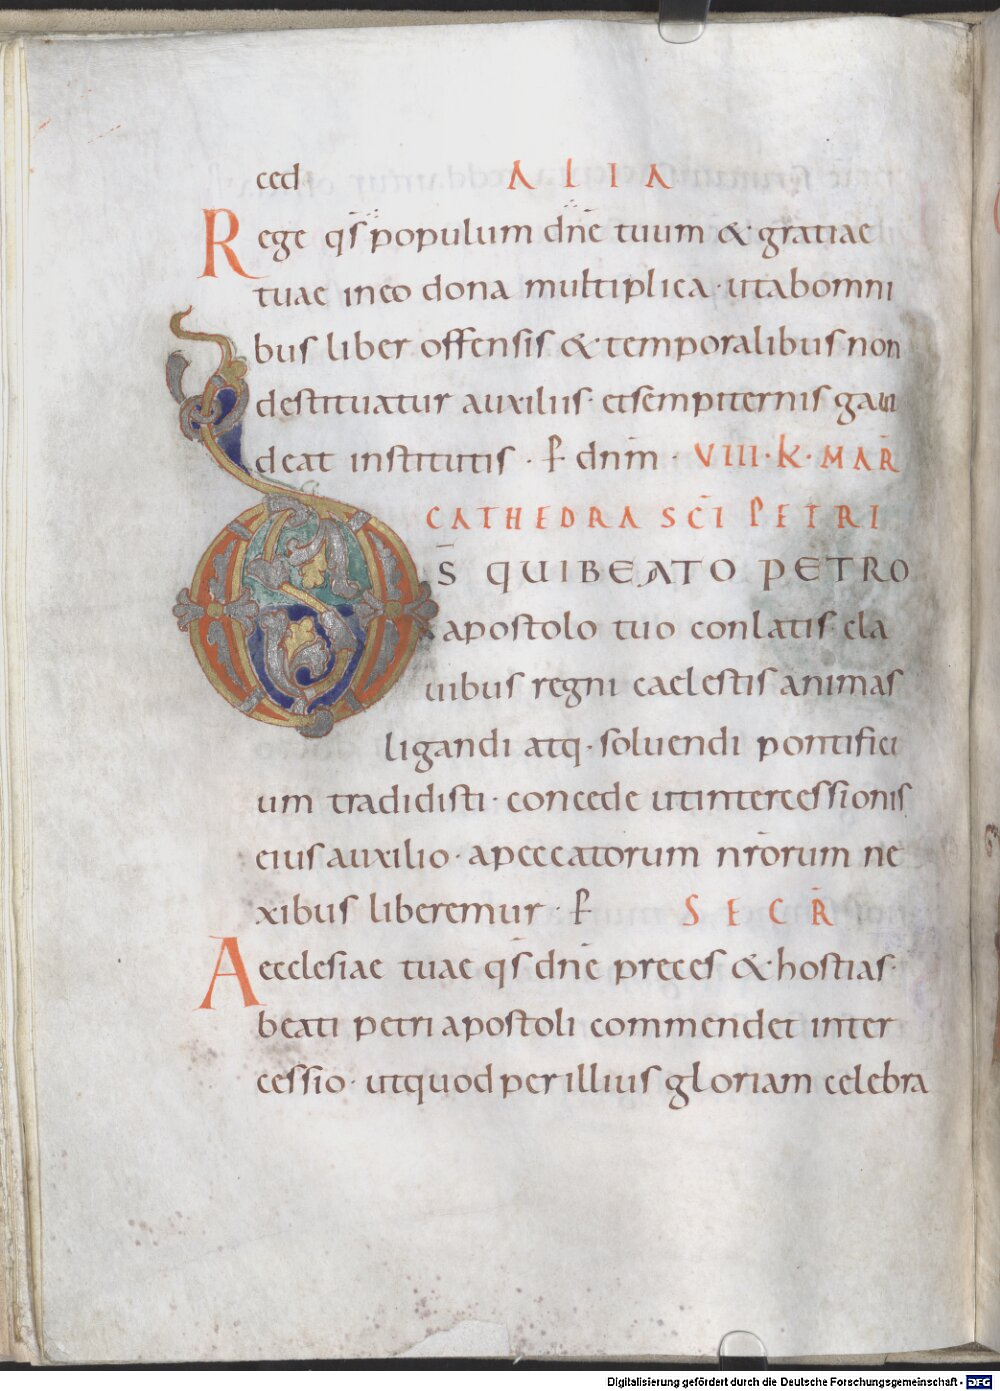 ced ALIA
Rege q̄s populum dn̄e tuum & gratiae
tuae ineo dona multiplica · utabomni
bus liber offensis & temporalibus non
destituatur auxiliis · etsempiternis gau
deat institutis · P dnm̄ · VIII · K · MAR̄
CATHEDRA SC̄I PETRI
D̄S QUIBEATO PETRO
apostolo tuo conlatis cla
uibus regni caelestis animas
ligandi atq · soluendi pontifici
um tradidisti · concede utintercessionis
eius auxilio · apeccatorum nr̄orum ne
xibus liberemur · P SECR̄
Aecclesiae tuae q̄s dn̄e preces & hostias ·
beati petri apostoli commendet inter
cessio · utquod perillius gloriam celebra
Digitalisierung gefördert durch die Deutsche Forschungsgemeinschaft - DFG